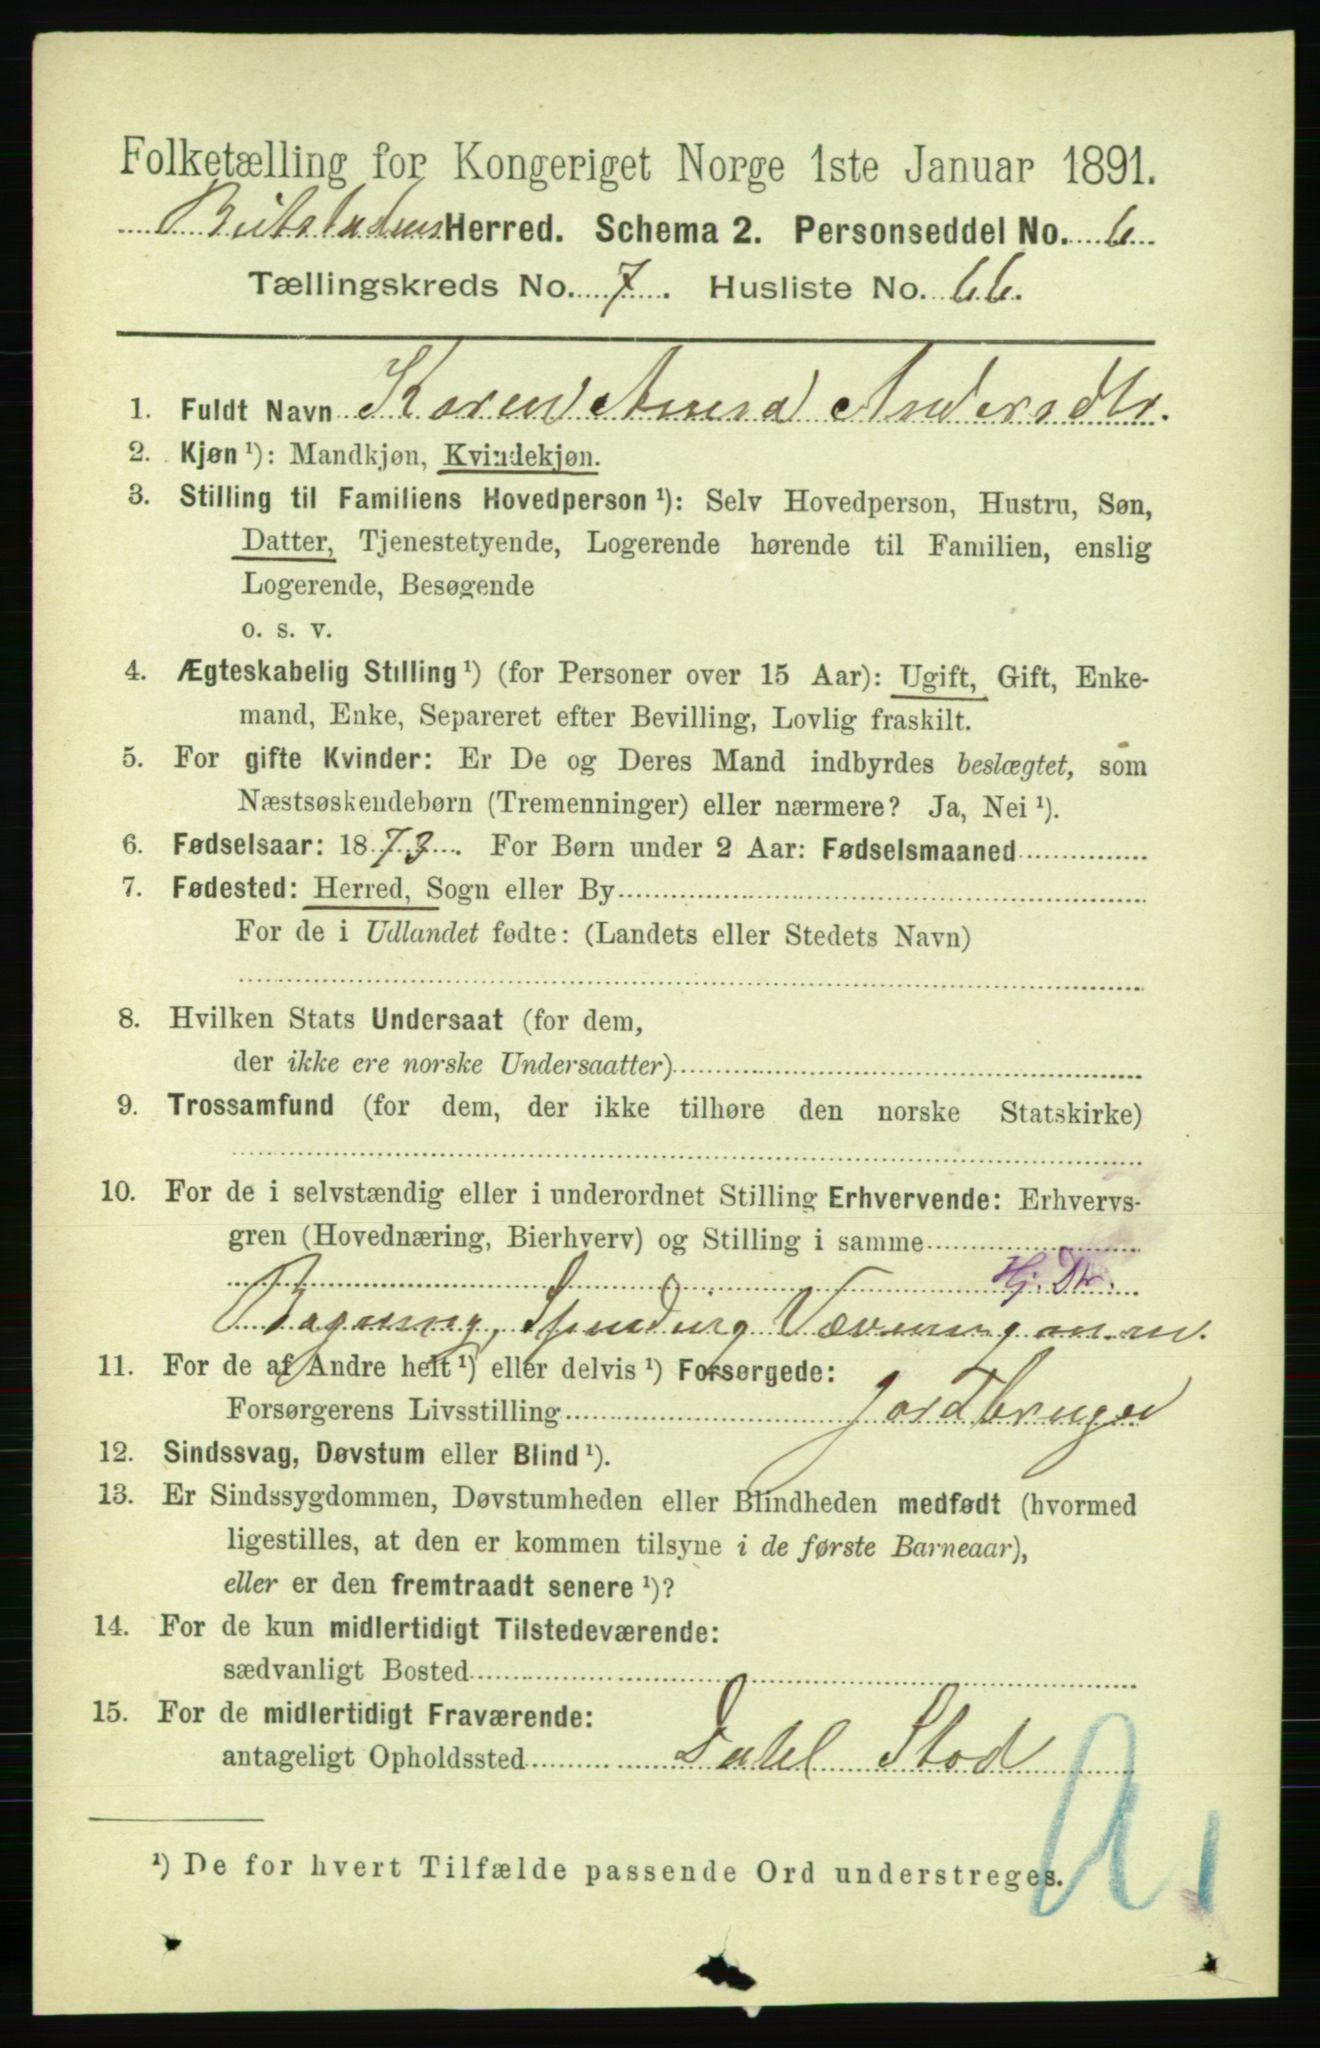 Folketælling for Kongeriget Norge 1ste Januar 1891.
Beitstadens Herred. Schema 2. Personseddel No. 6
Tællingskreds No. 7. Husliste No. 66.
1. Fuldt Navn Karen Anna Andersdtr.
2. Kjøn ¹): Mandkjøn, Kvindekjøn.
3. Stilling til Familiens Hovedperson ¹): Selv Hovedperson, Hustru, Søn,
Datter, Tjenestetyende, Logerende hørende til Familien, enslig
Logerende, Besøgende
o. s. v.
4. Ægteskabelig Stilling ¹) (for Personer over 15 Aar): Ugift, Gift, Enke-
mand, Enke, Separeret efter Bevilling, Lovlig fraskilt.
5. For gifte Kvinder: Er De og Deres Mand indbyrdes beslægtet, som
Næstsøskendebørn (Tremenninger) eller nærmere? Ja, Nei ¹).
6. Fødselsaar: 1873. For Børn under 2 Aar: Fødselsmaaned
7. Fødested: Herred, Sogn eller By
For de i Udlandet fødte: (Landets eller Stedets Navn)
8. Hvilken Stats Undersaat (for dem,
der ikke ere norske Undersaatter)
9. Trossamfund (for dem, der ikke tilhøre den norske Statskirke)
10. For de i selvstændig eller i underordnet Stilling Erhvervende: Erhvervs-
gren (Hovednæring, Bierhverv) og Stilling i samme
Hj. Dtr.
Bagning, Spinding Vævning m.m.
11. For de af Andre helt ¹) eller delvis ¹) Forsørgede:
Forsørgerens Livsstilling Jordbruger
12. Sindssvag, Døvstum eller Blind ¹).
13. Er Sindssygdommen, Døvstumheden eller Blindheden medfødt (hvormed
ligestilles, at den er kommen tilsyne i de første Barneaar),
eller er den fremtraadt senere ¹)?
14. For de kun midlertidigt Tilstedeværende:
sædvanligt Bosted
15. For de midlertidigt Fraværende:
antageligt Opholdssted Dahl Stod
¹) De for hvert Tilfælde passende Ord understreges.